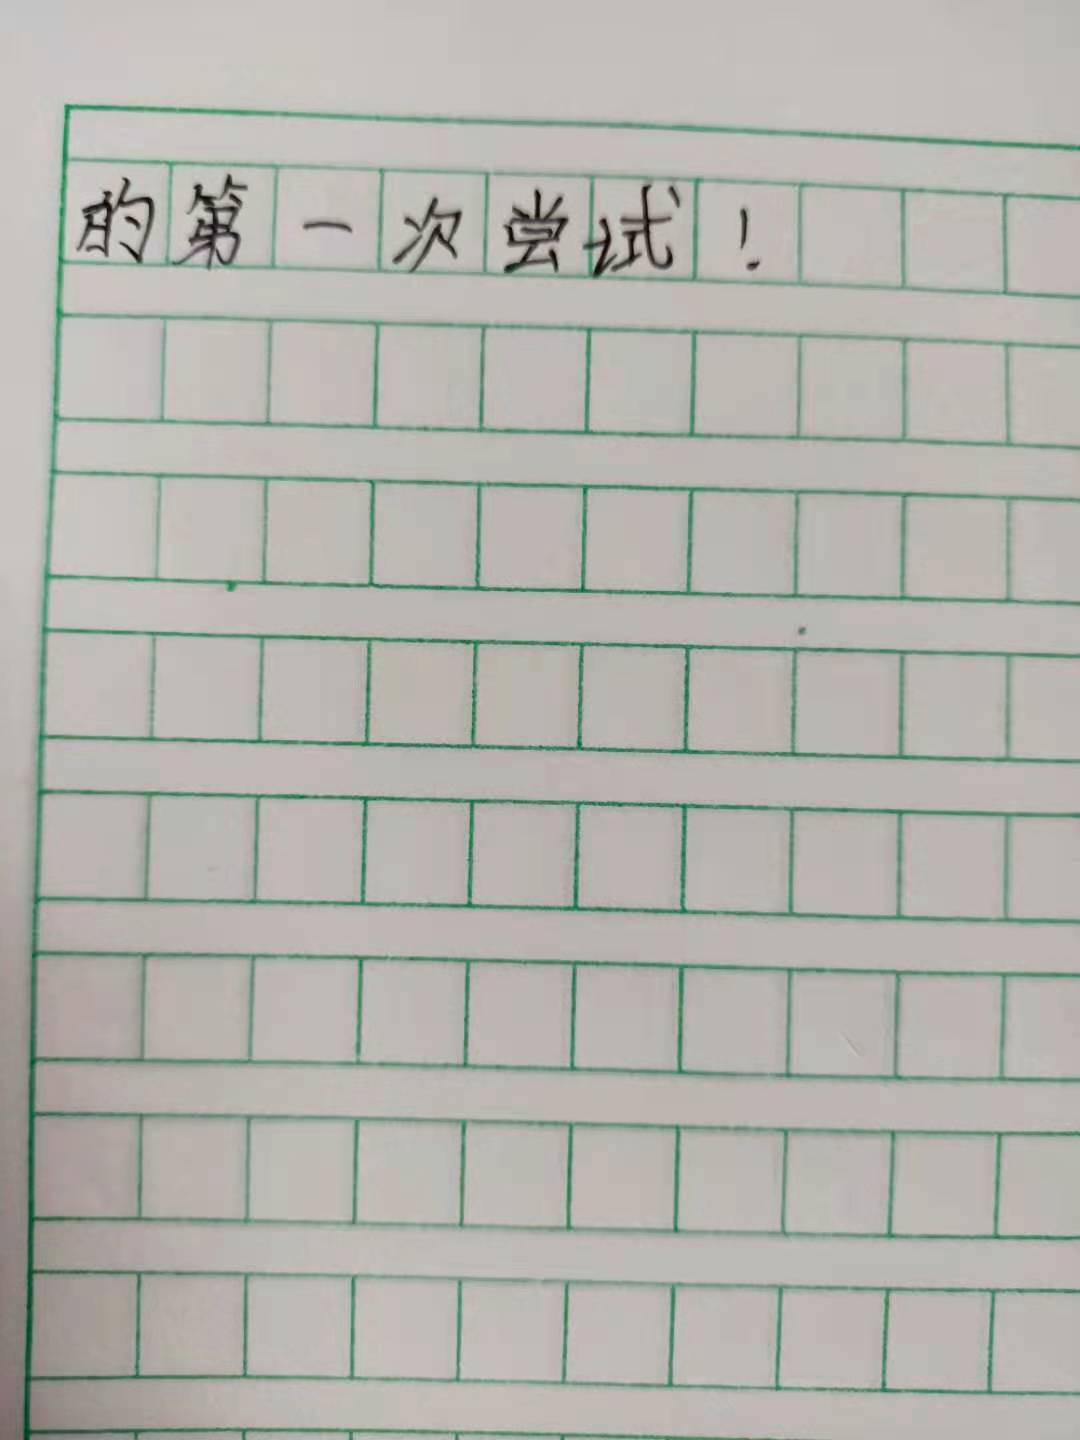 的第一次尝试！